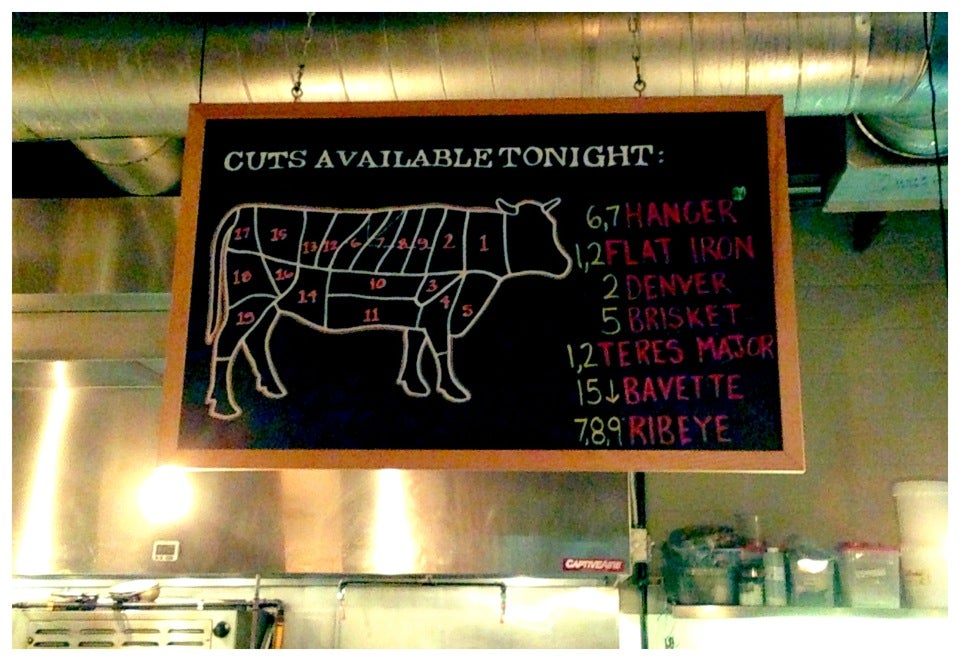 CUTS AVAILABLE TONIGHT:
6,7 HANGER
1,2 FLAT IRON
2 DENVER
5 BRISKET
1,2 TERES MAJOR
15↓ BAVETTE
7,8,9 RIBEYE
17 15 13 12 6 7 8 9 2 1
18 16 14 10 3
19 11 4 5
CAPTIVEAIRE